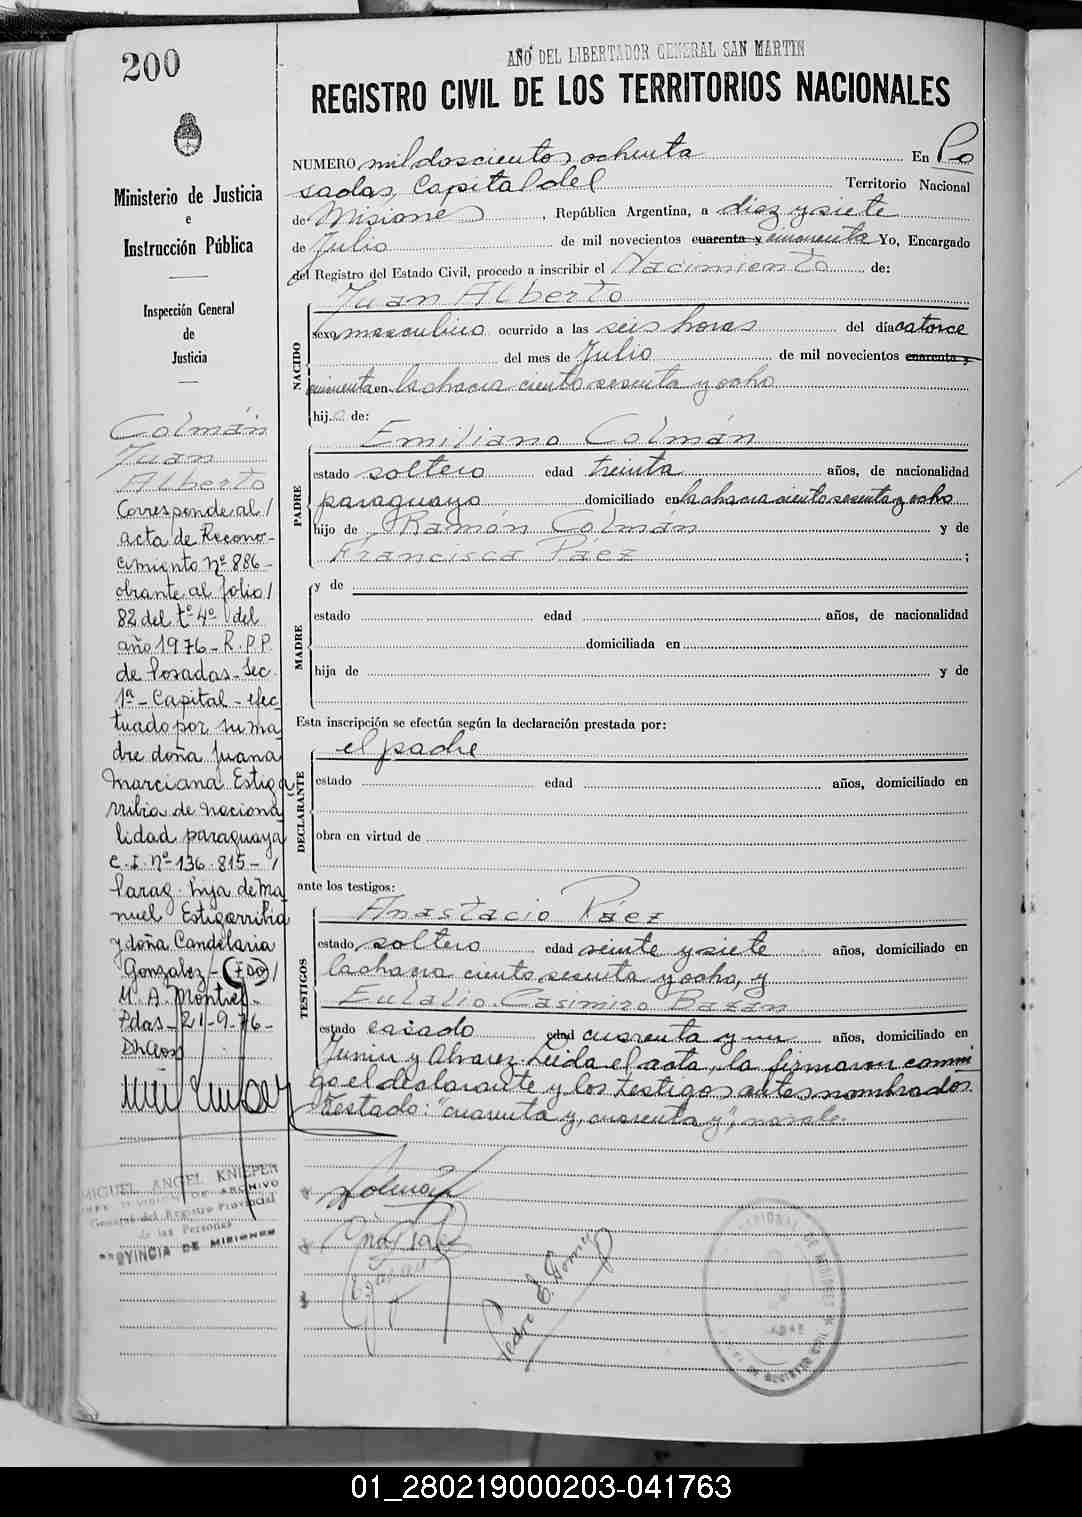 200
AÑO DEL LIBERTADOR GENERAL SAN MARTIN
REGISTRO CIVIL DE LOS TERRITORIOS NACIONALES
Ministerio de Justicia
e
Instrucción Pública
Inspección General
de
Justicia
Colmán
Juan
Alberto
Corresponde al/
acta de Recono-
cimiento Nº 886-
obrante al folio/
82 del tº 4º del
año 1976- R.P.P.
de Posadas- Sec.
1ª- Capital- efec
tuado por su ma
dre doña Juana
Marciana Estiga
rribia de naciona
lidad paraguaya
C.I. Nº 136.815- /
Parag. hija de Ma
nuel Estigarribia
y doña Candelaria
Gonzalez-(FDO)/
M. A. Montiel-
Pdas- 21-9-76-
MIGUEL ANGEL KNIEPER
JEFE DIVISION DE ARCHIVO
General del Registro Provincial
de las Personas
PROVINCIA DE MISIONES
NUMERO mil doscientos ochenta En Po
sadas, Capital del Territorio Nacional
de Misiones, República Argentina, a diez y siete
de Julio de mil novecientos cuarenta y cincuenta Yo, Encargado
del Registro del Estado Civil, procedo a inscribir el Nacimiento de:
Juan Alberto
NACIDO
sexo masculino ocurrido a las seis horas del día catorce
del mes de Julio de mil novecientos cuarenta y
cincuenta en la chacra ciento sesenta y ocho
hijo de:
Emiliano Colmán
PADRE
estado soltero edad treinta años, de nacionalidad
paraguayo domiciliado en la chacra ciento sesenta y ocho
hijo de Ramón Colmán y de
Francisca Páez ;
y de
MADRE
estado edad años, de nacionalidad
domiciliada en
hija de y de
Esta inscripción se efectúa según la declaración prestada por:
el padre
DECLARANTE
estado edad años, domiciliado en
obra en virtud de
ante los testigos:
Anastacio Páez
TESTIGOS
estado soltero edad veinte y siete años, domiciliado en
la chacra ciento sesenta y ocho, y
Eulalio Casimiro Bazán
estado casado edad cuarenta y un años, domiciliado en
Junin y Alvarez. Leida el acta, la firmaron conmi
go el declarante y los testigos antes nombrados.
Testado: "cuarenta y, cuarenta y", no vale.
Colmán
Pedro E. Gomez
01_280219000203-041763